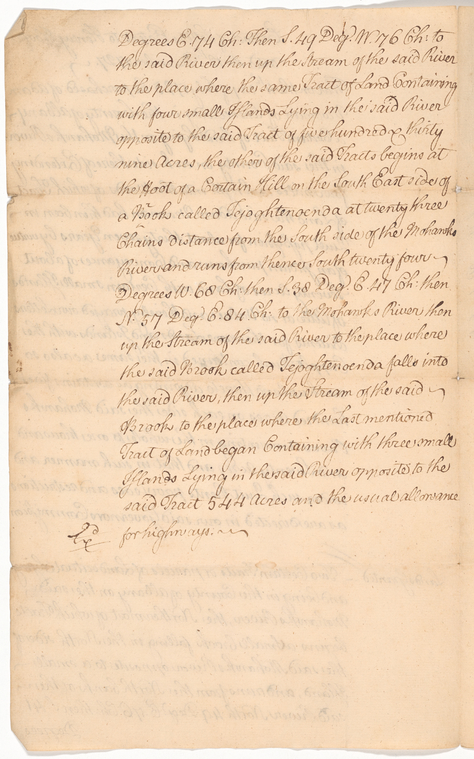 Degrees E. 74 Ch: Then S. 49 Deg. W. 76 Ch: to
the said River then up the Stream of the said River
to the place where the same Tract of Land Containing
with four small Islands Lying in the said River
opposite to the said Tract of five hundred & thirty
nine Acres, the others of the said Tracts begins at
the Foot of a Certain Hill on the South East side of
a Brook called Tejoghtenoenda at twenty three
Chains distance from the South side of the Mohawks
River and runs from thence South twenty four
Degrees W. 68 Ch: then S. 38 Deg. E. 47 Ch: then
N. 57 Deg. E. 84 Ch: to the Mohawks River then
up the Stream of the said River to the place where
the said Brook called Tejoghtenoenda falls into
the said River, then up the Stream of the said
Brook to the place where the Last mentioned
Tract of Land began Containing with three small
Islands Lying in the said River opposite to the
said Tract 544 Acres and the usual allowance
for highways.